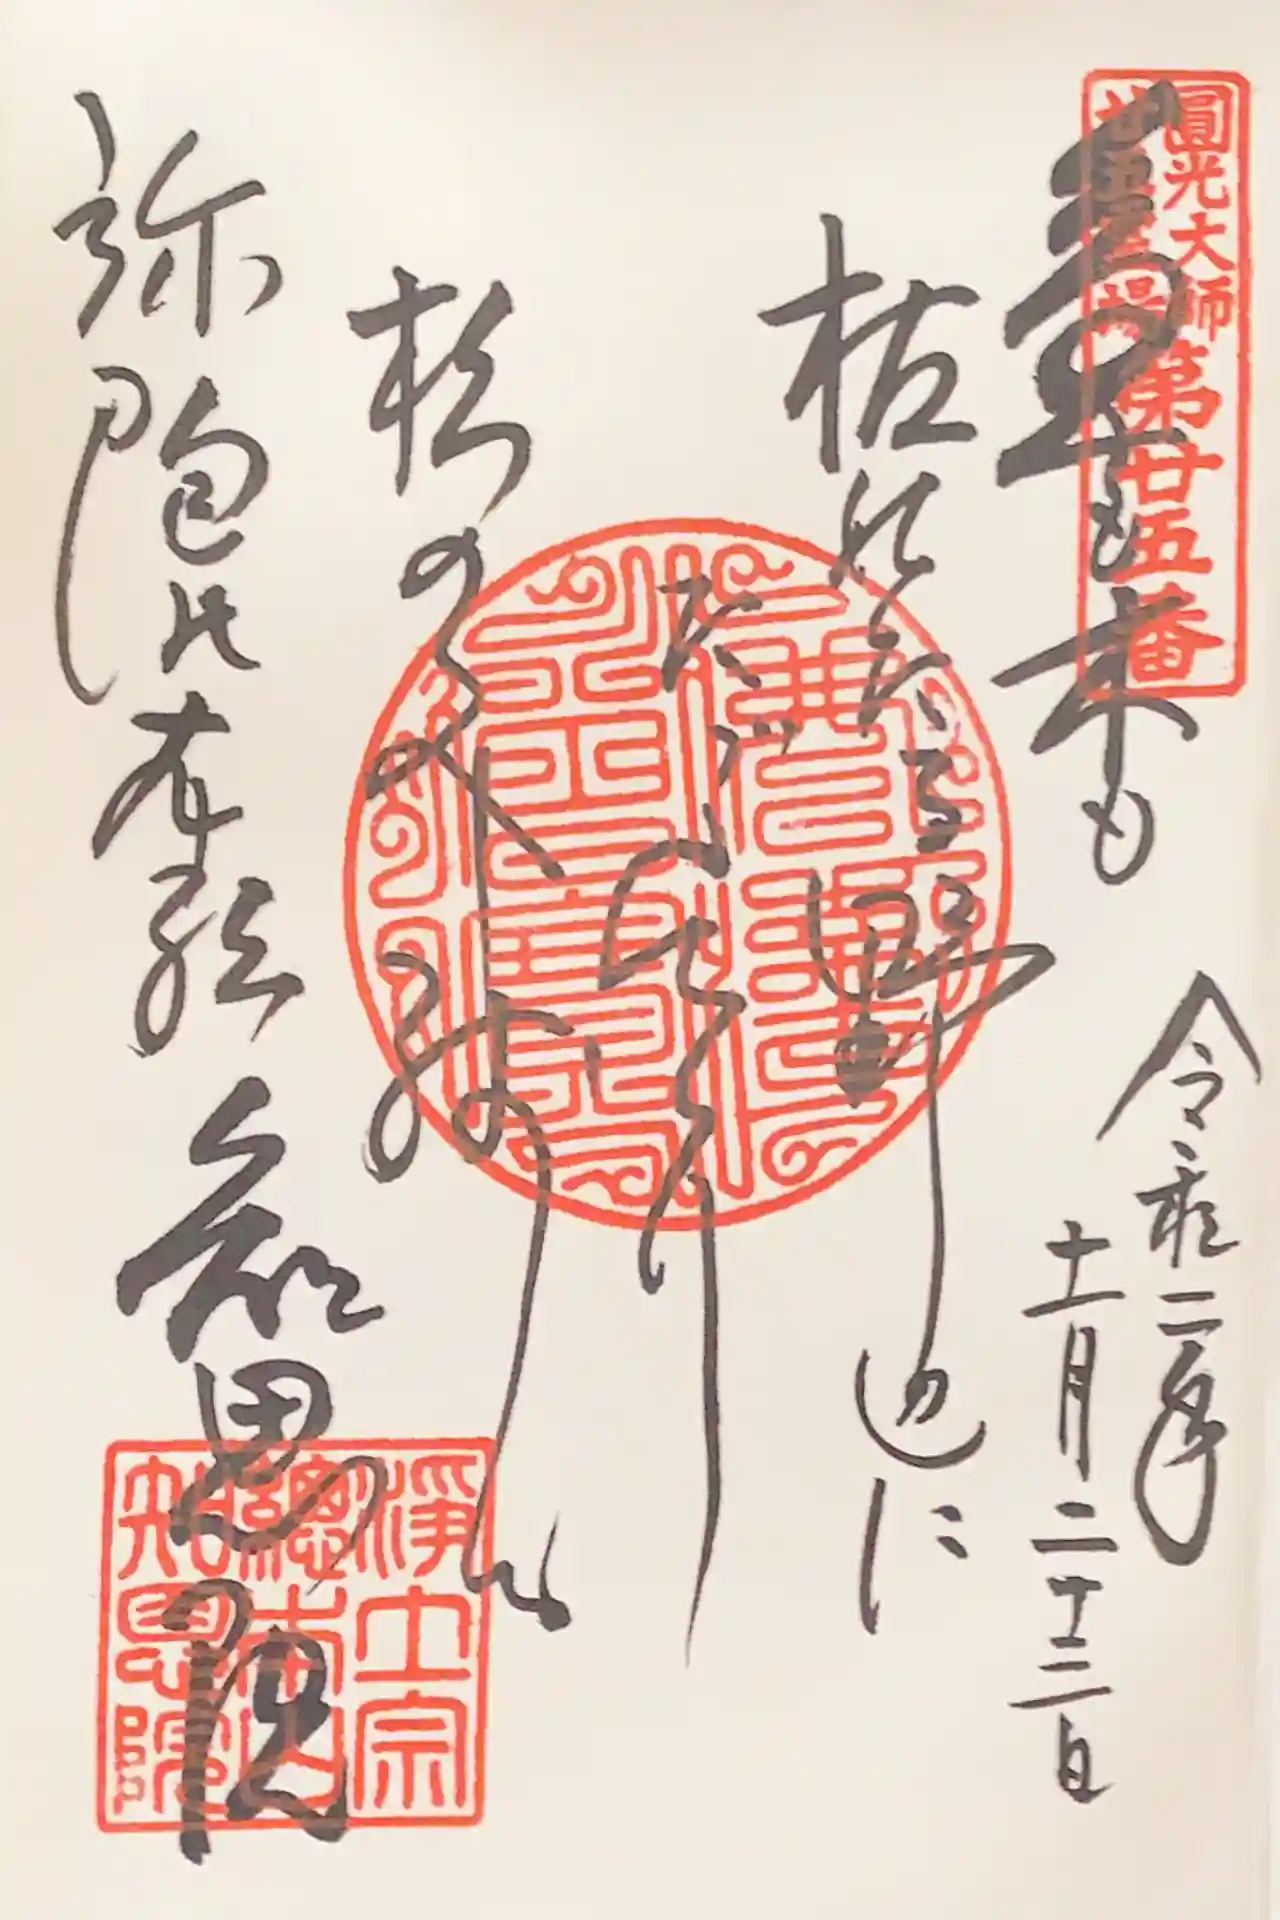 圓光大師
廿五霊場
第廿五番
草も木も
枯れたる野辺に
ただひとり
松のみ残る
弥陀の本願
知恩院
令和二年
十一月二十三日
淨土宗
總本山
知恩院